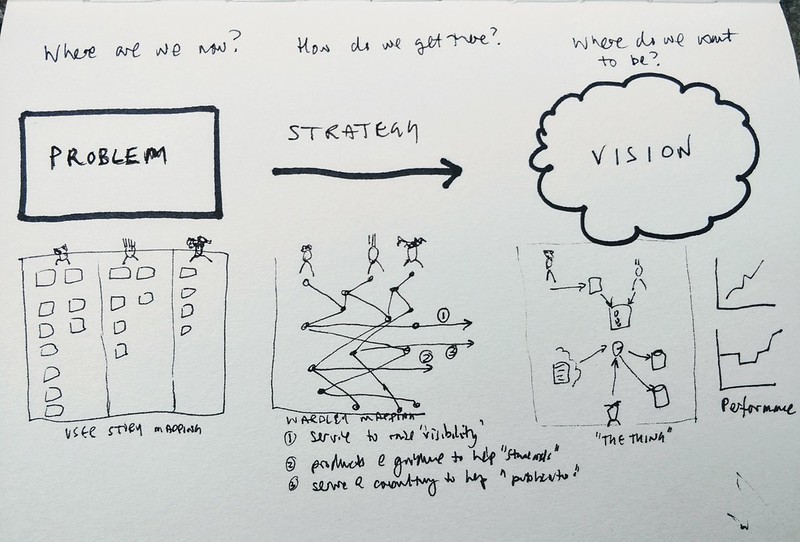 Where are we now?
How do we get there?
Where do we want
to be?
PROBLEM
STRATEGY
VISION
①
②
③
USER STORY MAPPING
WARDLEY MAPPING
① service to raise "visibility"
② products & guidance to help "standards"
③ service & consulting to help "publication"
"THE THING"
Performance